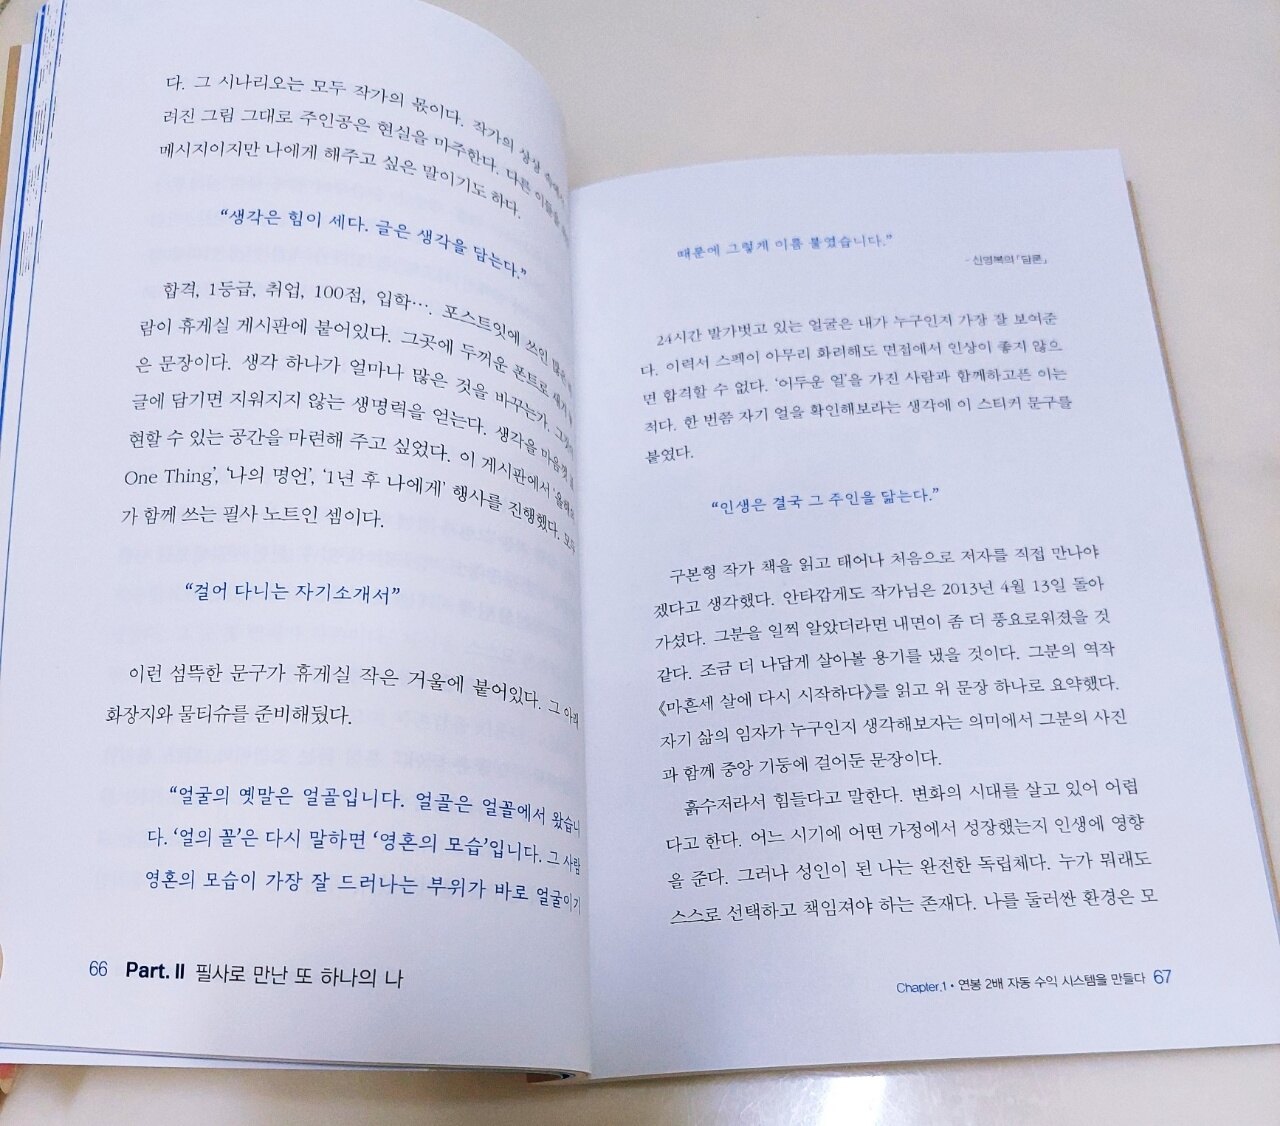 다. 그 시나리오는 모두 작가의 몫이다. 작가의 상상 속에서
러진 그림 그대로 주인공은 현실을 마주한다. 다른 이들을
메시지이지만 나에게 해주고 싶은 말이기도 하다.
“생각은 힘이 세다. 글은 생각을 담는다.”
합격, 1등급, 취업, 100점, 입학…. 포스트잇에 쓰인 많은
람이 휴게실 게시판에 붙어있다. 그곳에 두꺼운 폰트로
은 문장이다. 생각 하나가 얼마나 많은 것을 바꾸는가.
글에 담기면 지워지지 않는 생명력을 얻는다. 생각을 마음껏 표
현할 수 있는 공간을 마련해 주고 싶었다. 이 게시판에서 ‘올해의
One Thing’, ‘나의 명언’, ‘1년 후 나에게’ 행사를 진행했다. 모두
가 함께 쓰는 필사 노트인 셈이다.
“걸어 다니는 자기소개서”
이런 섬뜩한 문구가 휴게실 작은 거울에 붙어있다. 그 아래
화장지와 물티슈를 준비해뒀다.
“얼굴의 옛말은 얼골입니다. 얼골은 얼꼴에서 왔습니
다. ‘얼의 꼴’은 다시 말하면 ‘영혼의 모습’입니다. 그 사람
영혼의 모습이 가장 잘 드러나는 부위가 바로 얼굴이기
66 Part. II 필사로 만난 또 하나의 나
때문에 그렇게 이름 붙였습니다.”
- 신영복의 「담론」
24시간 발가벗고 있는 얼굴은 내가 누구인지 가장 잘 보여준
다. 이력서 스펙이 아무리 화려해도 면접에서 인상이 좋지 않으
면 합격할 수 없다. ‘어두운 얼’을 가진 사람과 함께하고픈 이는
적다. 한 번쯤 자기 얼을 확인해보라는 생각에 이 스티커 문구를
붙였다.
“인생은 결국 그 주인을 닮는다.”
구본형 작가 책을 읽고 태어나 처음으로 저자를 직접 만나야
겠다고 생각했다. 안타깝게도 작가님은 2013년 4월 13일 돌아
가셨다. 그분을 일찍 알았더라면 내면이 좀 더 풍요로워졌을 것
같다. 조금 더 나답게 살아볼 용기를 냈을 것이다. 그분의 역작
《마흔세 살에 다시 시작하다》를 읽고 위 문장 하나로 요약했다.
자기 삶의 임자가 누구인지 생각해보자는 의미에서 그분의 사진
과 함께 중앙 기둥에 걸어둔 문장이다.
흙수저라서 힘들다고 말한다. 변화의 시대를 살고 있어 어렵
다고 한다. 어느 시기에 어떤 가정에서 성장했는지 인생에 영향
을 준다. 그러나 성인이 된 나는 완전한 독립체다. 누가 뭐래도
스스로 선택하고 책임져야 하는 존재다. 나를 둘러싼 환경은 모
Chapter.1 • 연봉 2배 자동 수익 시스템을 만들다 67